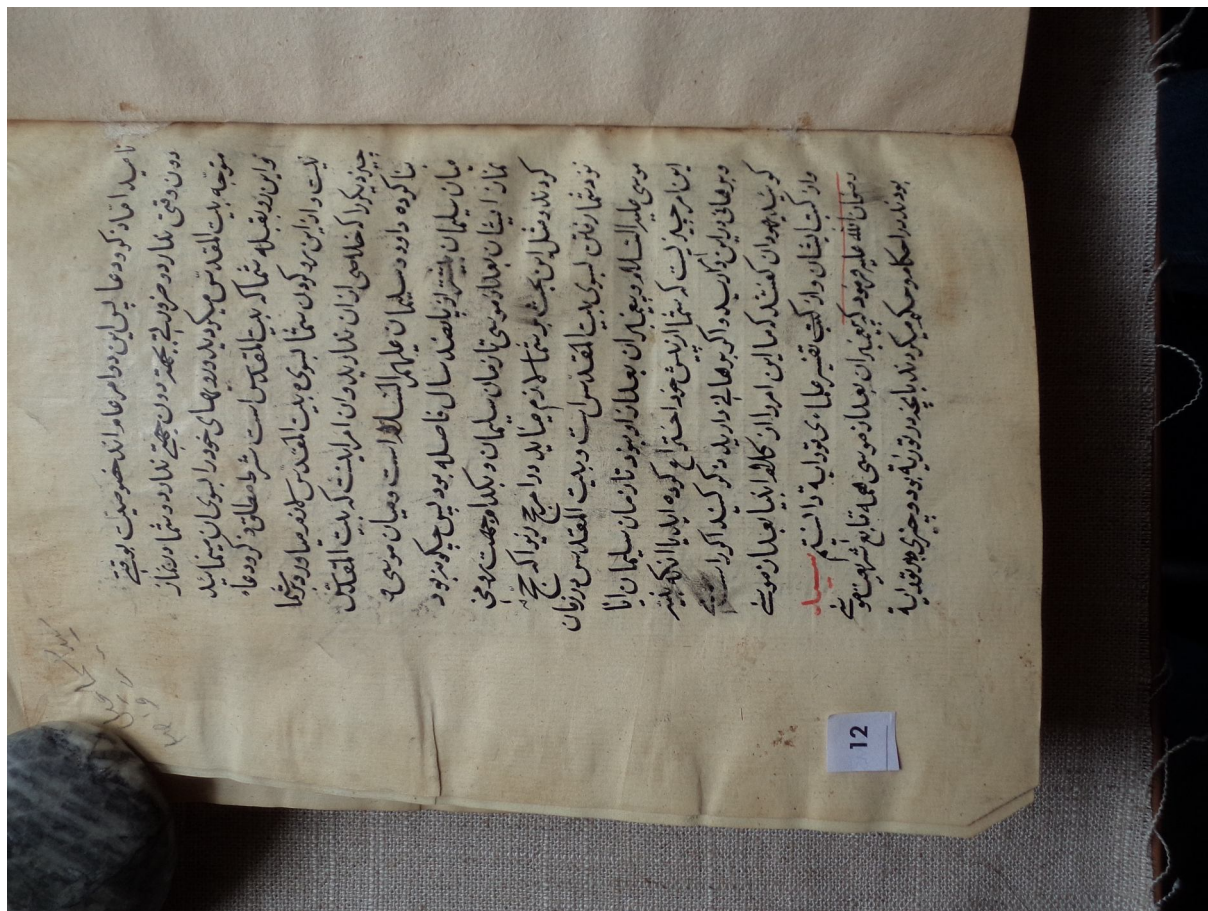 نامید افاد کرد و دعا پس این دو امر عام اند خصوصیت بوقتی
دون وقتی ندارد و در جزو جهة دون جهتی ندارد و شما در نماز
متوجه بیت المقدس میکردید و رویهای خود را بسوی آن مینمائید
و این رو بقبله شما که بیت المقدس است شرط مطلق ذکر و دعاء
نیست و از این رو کردن شما بسوی بیت المقدس لازم میاورد و شما
چیز دیگر را که خلاصی از آن ندارید و آن امر اینست که بیت المقدس
بنا کرده داود و سلیمان علیهم السلام است و میان موسی و
میان سلیمان بیشتر از پانصد سال فاصله بود پس چگونه بود
نماز ایشان بعد از موسی تا زمان سلیمان و بکدام جهت رو می
کردند و مثل این بحث بر شما لازم میاید در امر حج زیرا که حج
نزد شما رفتن بسوی بیت المقدس است و بیت المقدس در زمان
موسی علیه السلام و پیغمبران بعد از او نبود تا زمان سلیمان ایا
این امر چیزیست که شما از پیش خود اختراع کرده اید یا انکه بینه
و برهانی در این دارید و اگر برهانی دارید ذکر کنید اگر راست
گوئید یهودان گفتند که ما این امر را از کلام انبیا بعد از موسی
و از کتب ایشان و از کتب تفسیر علماء توراة دانستیم سید
رضوان الله علیه فرمود که پیغمبران بعد از موسی همه تابع شریعت موسی
بودند در احکام و حکم میکردند بانچه در توریة بود و چیزی در توریة
12